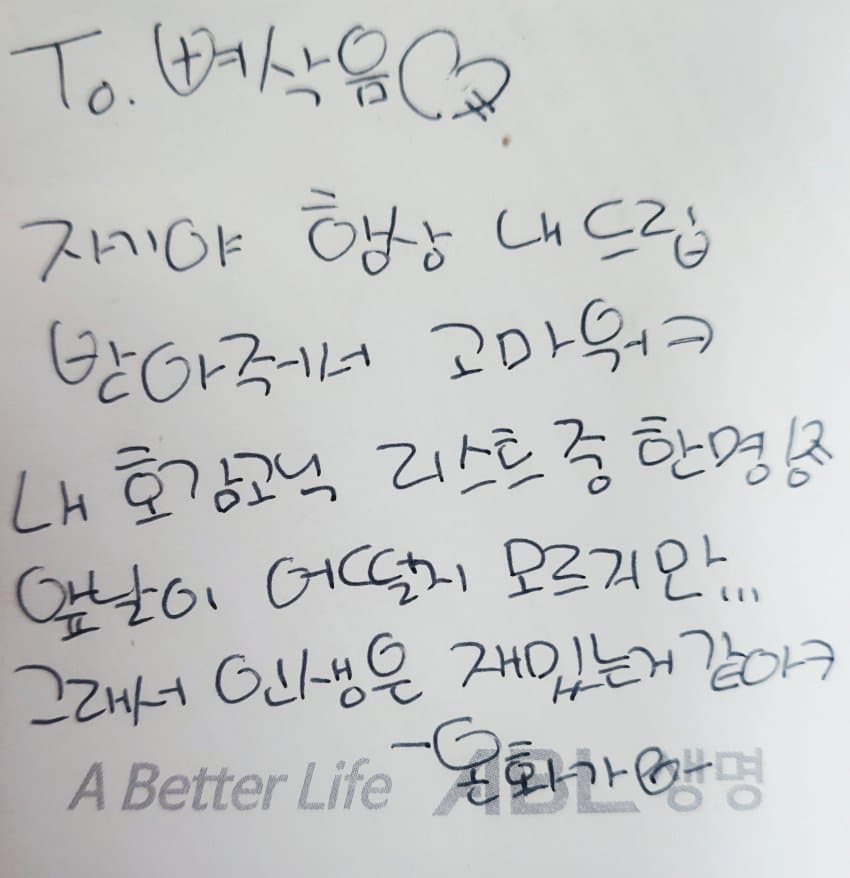 To.
자기야 항상 내 드립
받아줘서 고마워ㅋ
내 호감고닉 리스트 중 한명
앞날이 어떨지 모르지만...
그래서 인생은 재밌는거 같아ㅋ
A Better Life ABL생명